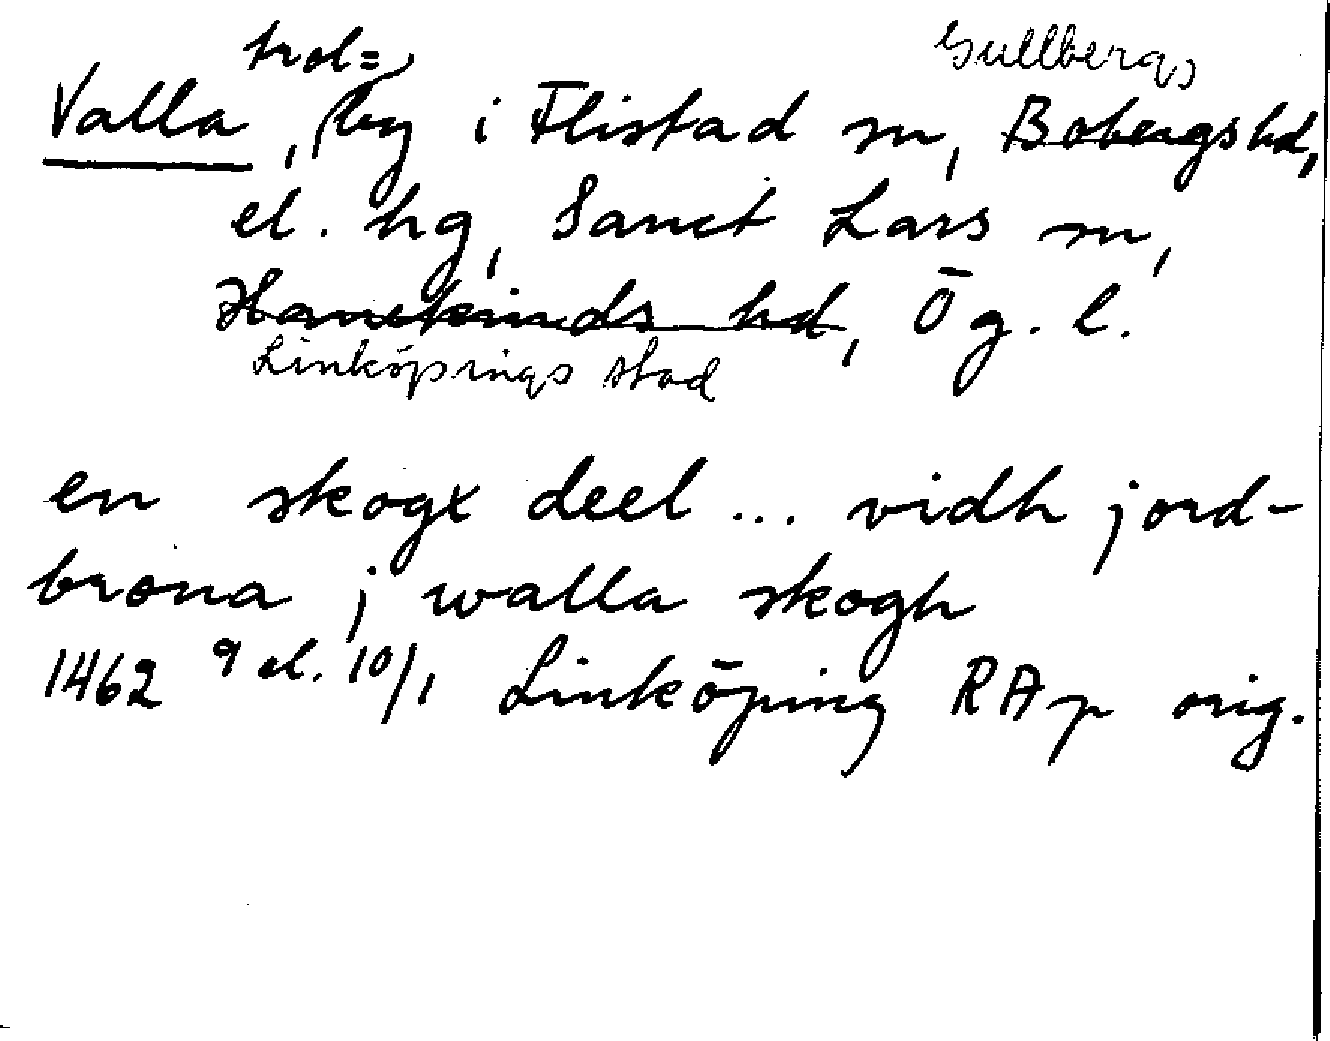 trol= Gullbergs
Valla, by i Flistad sn, Bobergs hd,
el. hg, Sanct Lars sn,
Hanekinds hd, Ög. l.
Linköpings stad
en skogx deel ... vidh jord-
brona j walla skogh
1462 9 el. 10/1 Linköping RAp orig.